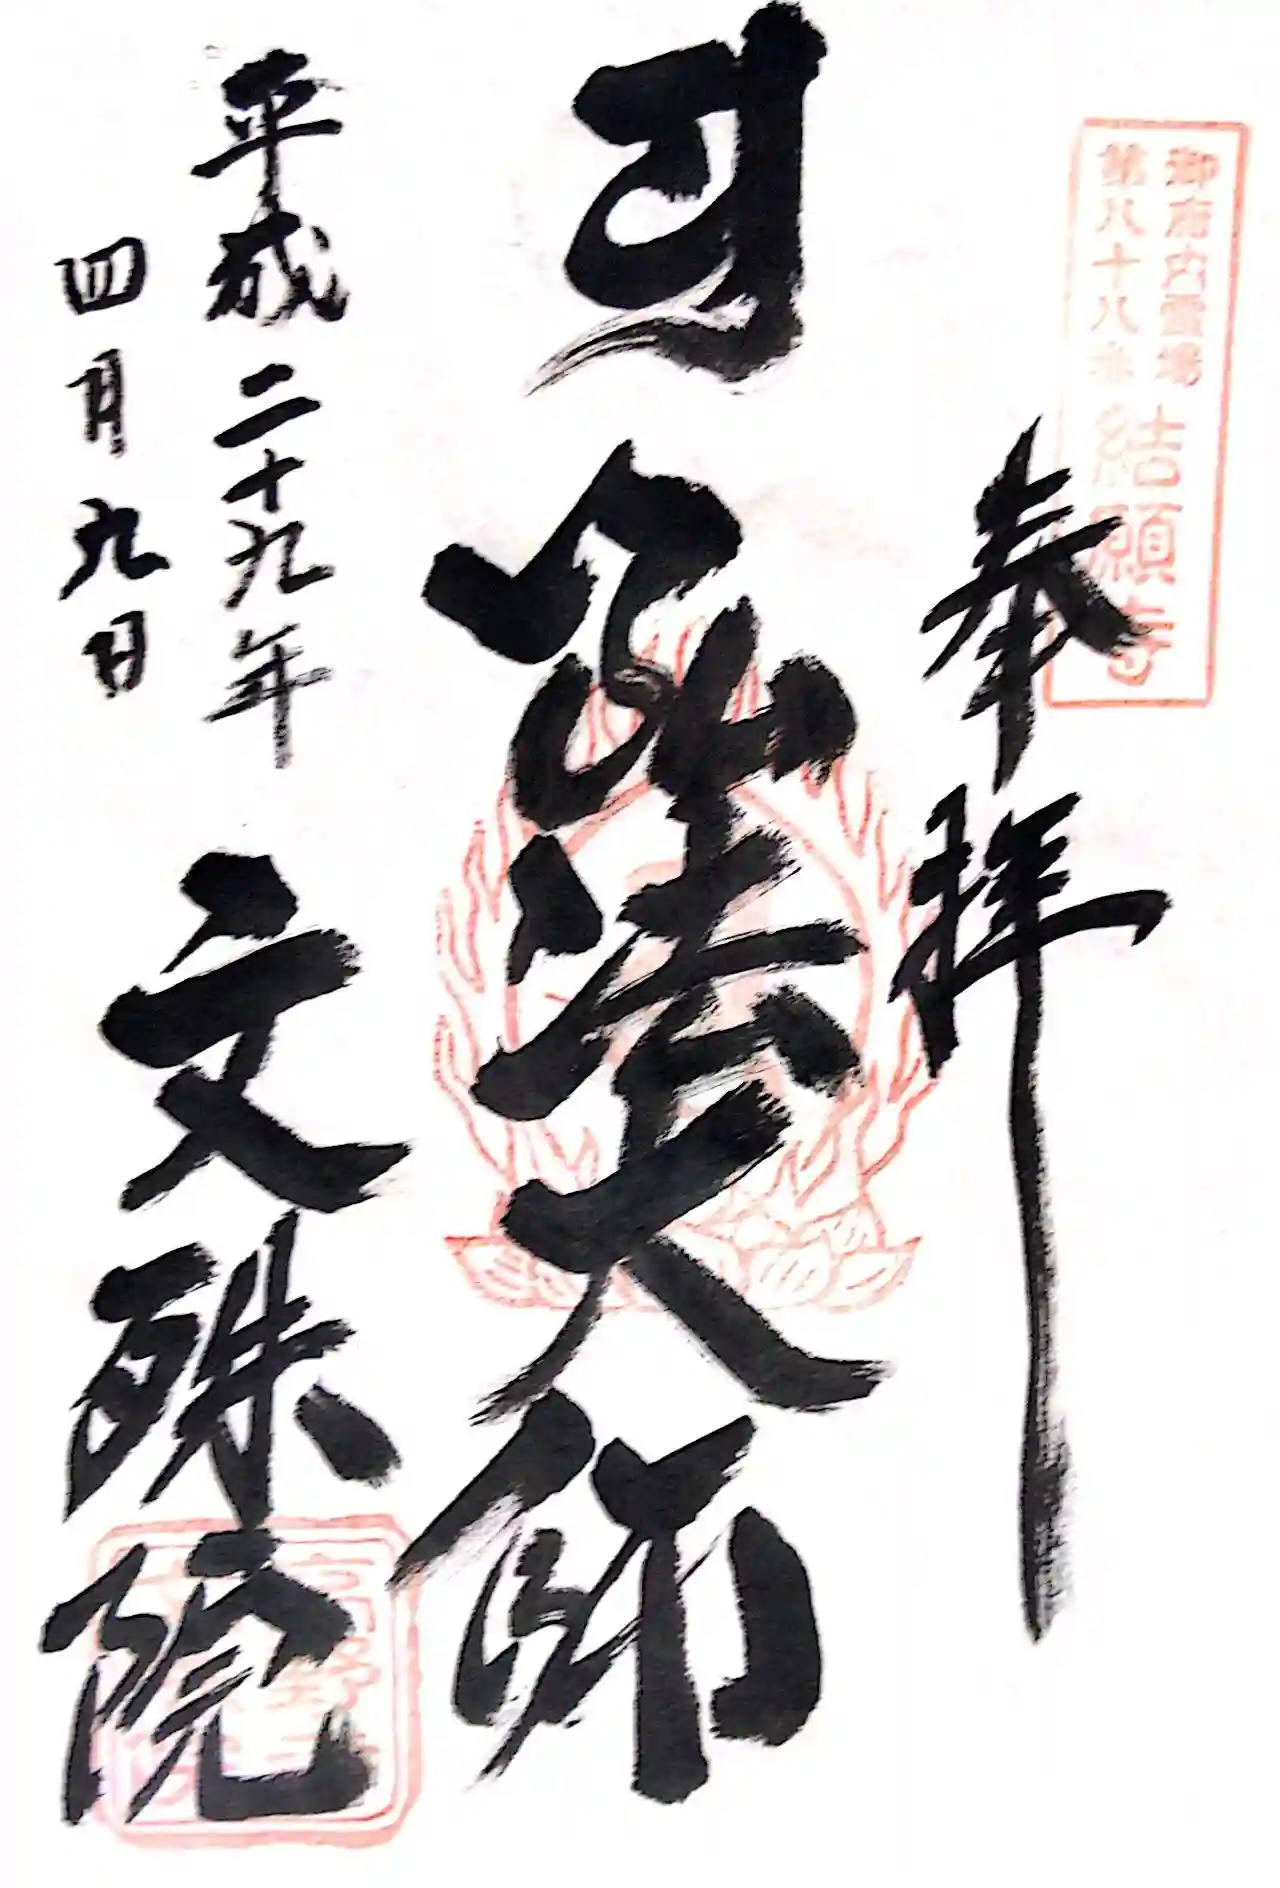 御府内霊場
第八十八番
結願寺
奉拝
弘法大師
平成二十九年
四月九日
文殊院